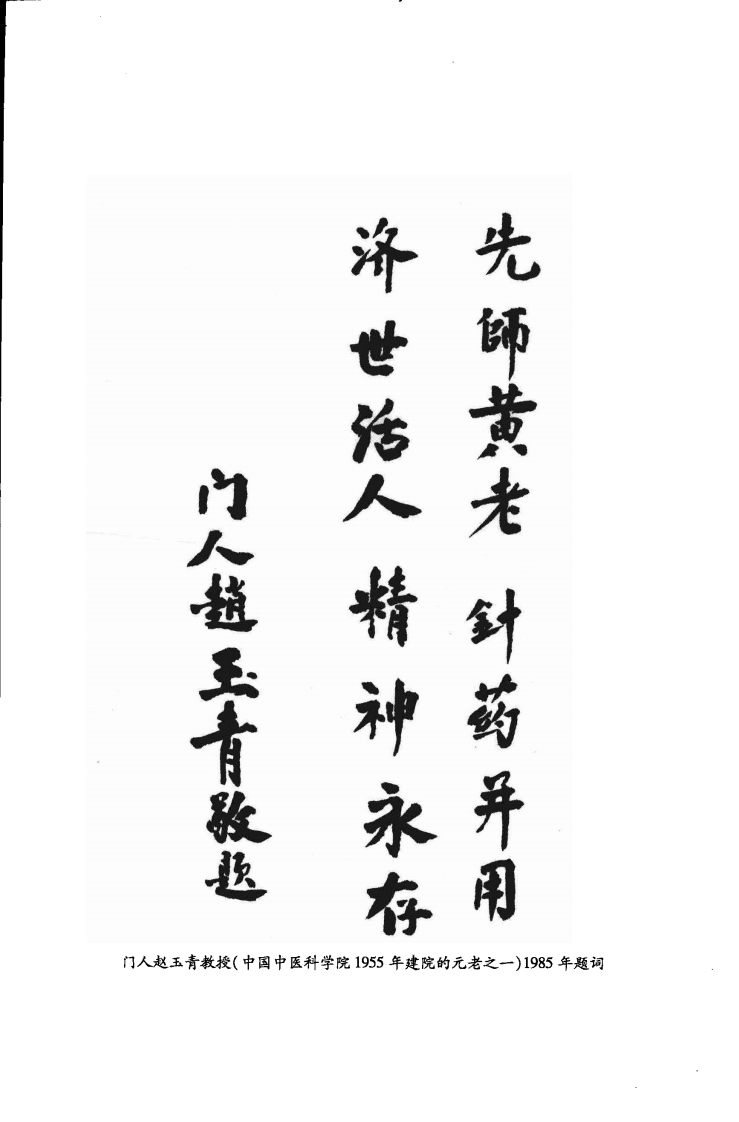 先師黄老 針药并用
济世活人 精神永存
门人趙玉青敬题
门人赵玉青教授(中国中医科学院1955年建院的元老之一)1985年题词